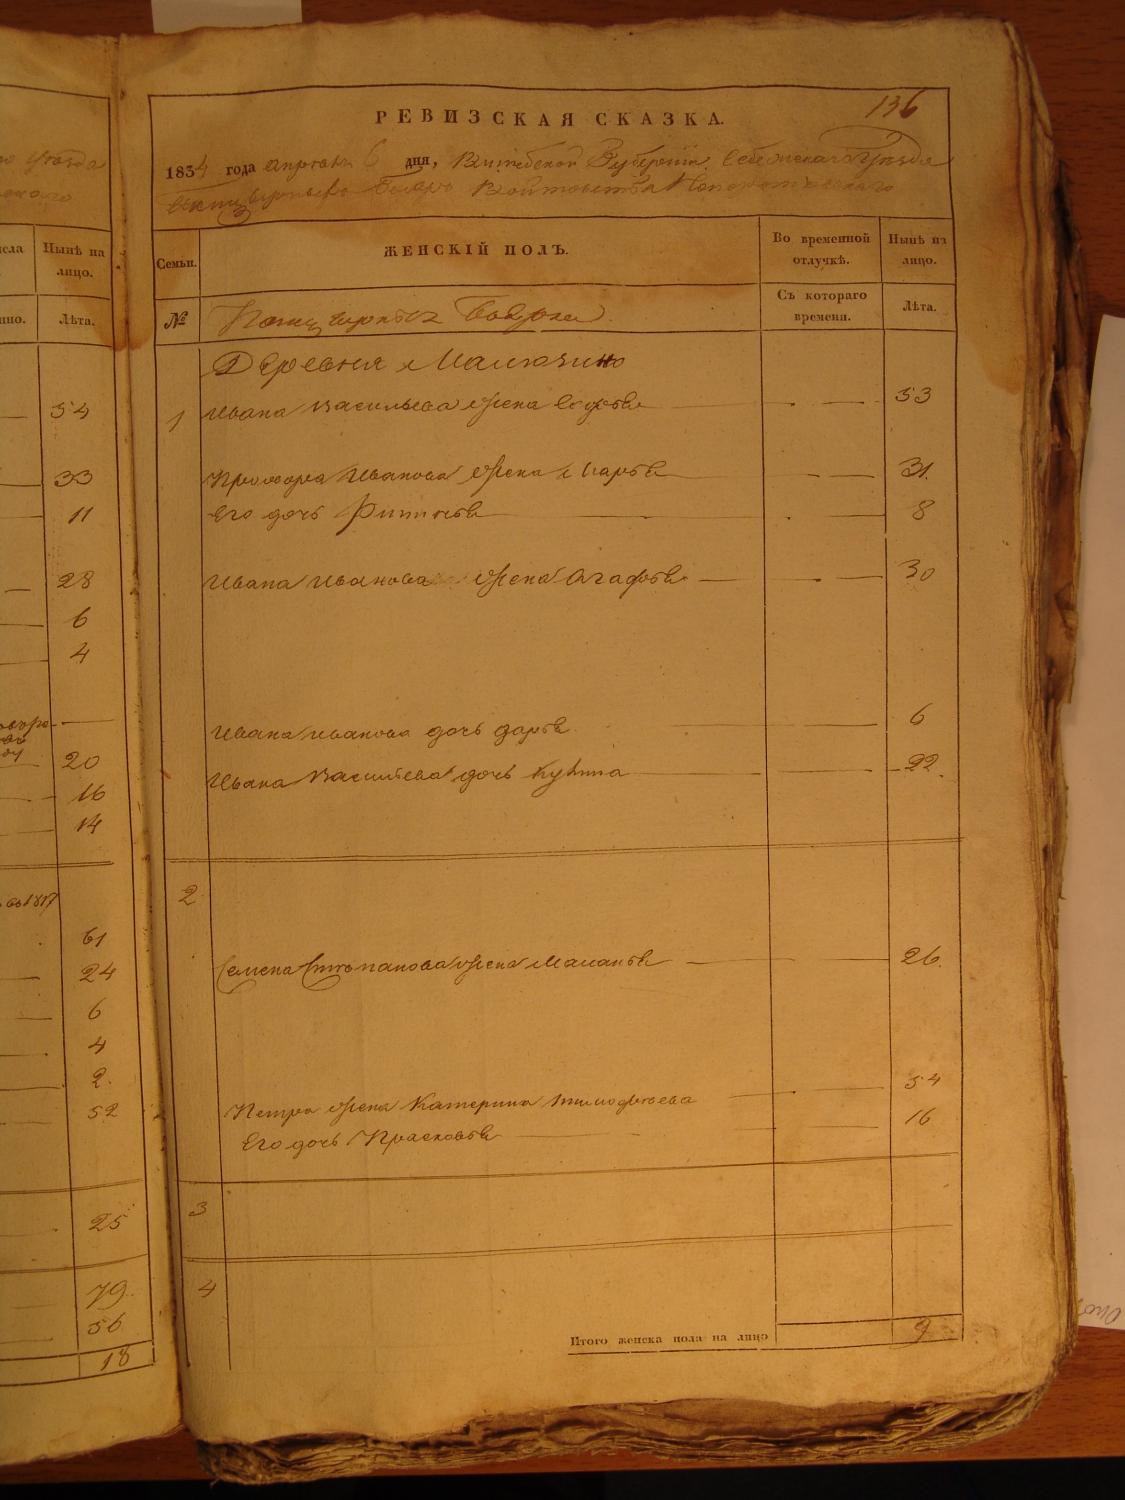 136
РЕВИЗСКАЯ СКАЗКА.
1834 года апреля 6 дня, Витебской Губернии Себежского Уезда
уезда
Семьи.
ЖЕНСКІЙ ПОЛЪ.
Во временной отлучкѣ.
Нынѣ на лицо.
№
Съ котораго времени.
Лѣта.
Деревня Малюзино
1 Ивана Васильева жена 53
Прохора Иванова жена Марья 31.
Его дочь 8
Ивана Иванова жена Агафья 30
Ивана Иванова дочь Дарья 6
Ивана Васильева дочь 22.
2
Семена Степанова жена Маланья 26.
Петра жена Катерина Тимофеева 54
Его дочь Прасковья 16
3
4
Итого женска пола на лицо 9
Нынѣ на лицо.
Лѣта.
54
33
11
28
6
4
20
16
14
61
24
6
4
2.
52
25
79.
56
18